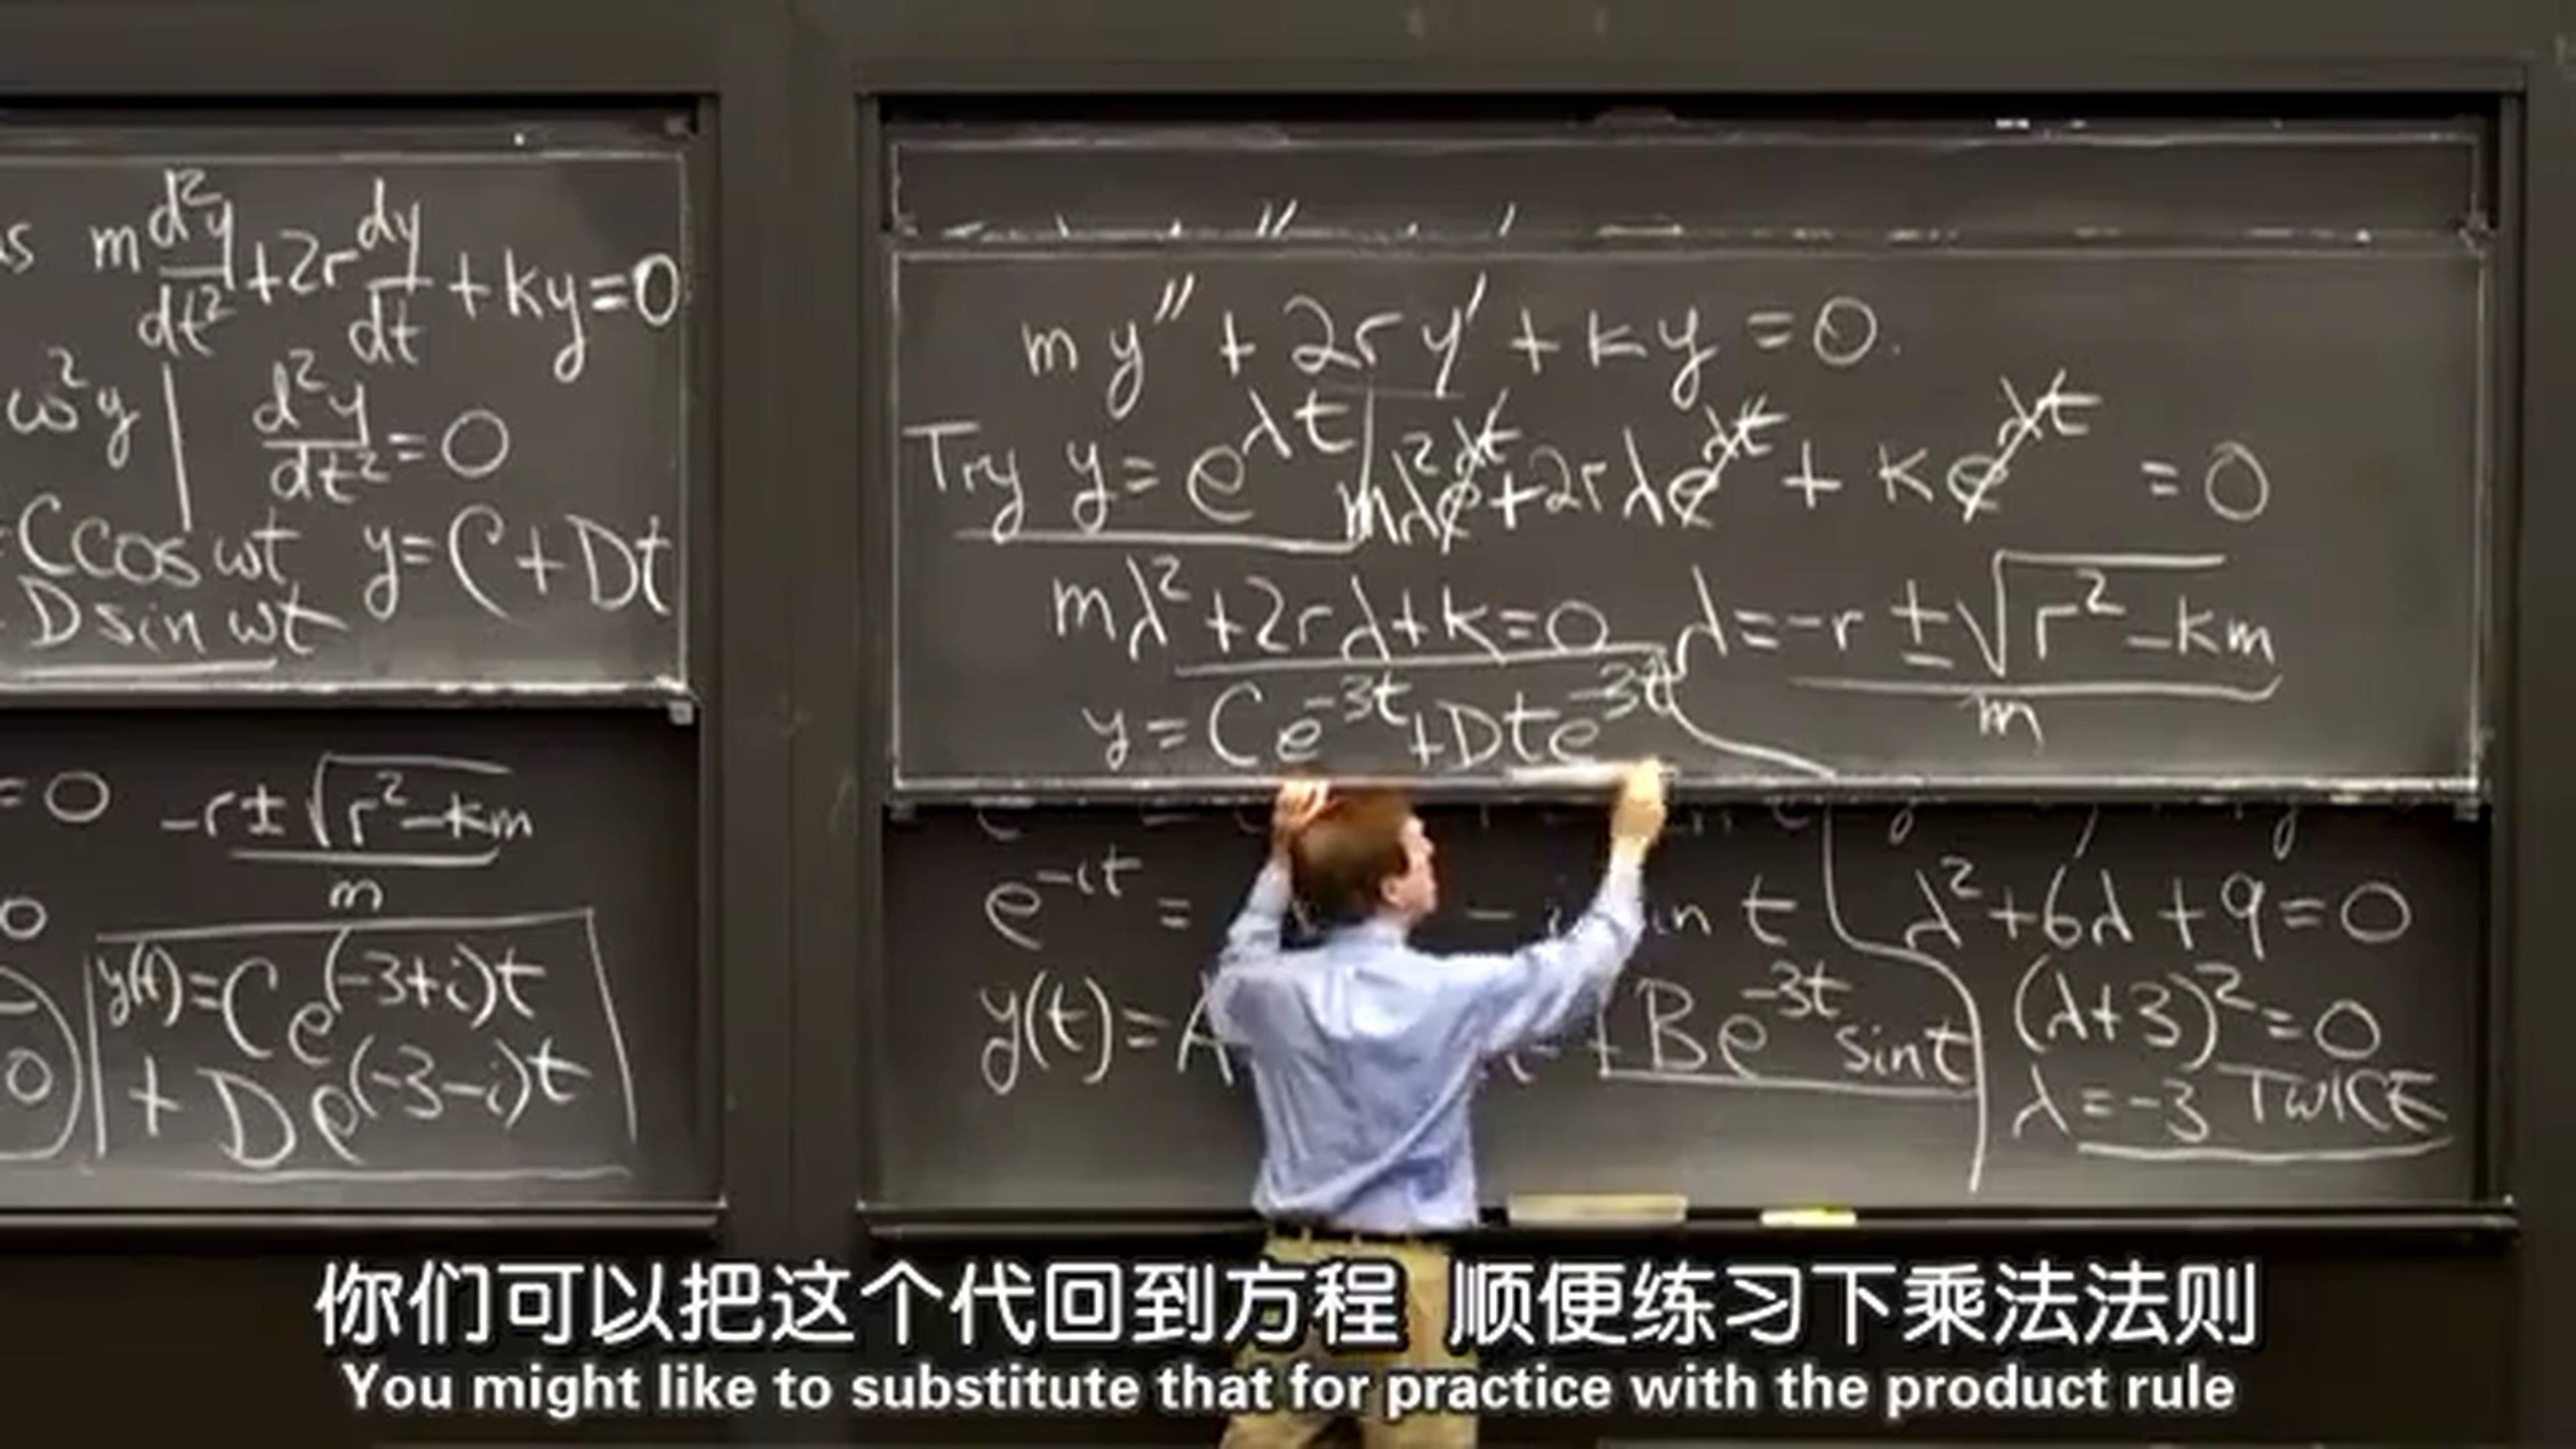 m d²y/dt² + 2r dy/dt + ky = 0
ω²y | d²y/dt² = 0
C cos ωt y = C + Dt
D sin ωt
= 0 -r ± √(r² - km) / m
0
y(t) = Ce^(-3+i)t
+ De^(-3-i)t
my'' + 2ry' + ky = 0.
Try y = e^λt | mλ²e^λt + 2rλe^λt + ke^λt = 0
mλ² + 2rλ + k = 0 λ = -r ± √(r² - km) / m
y = Ce^-3t + Dte^-3t
e^-it = - in t
y(t) = A + Be^-3t sin t
λ² + 6λ + 9 = 0
(λ+3)² = 0
λ = -3 TWICE
你们可以把这个代回到方程 顺便练习下乘法法则
You might like to substitute that for practice with the product rule